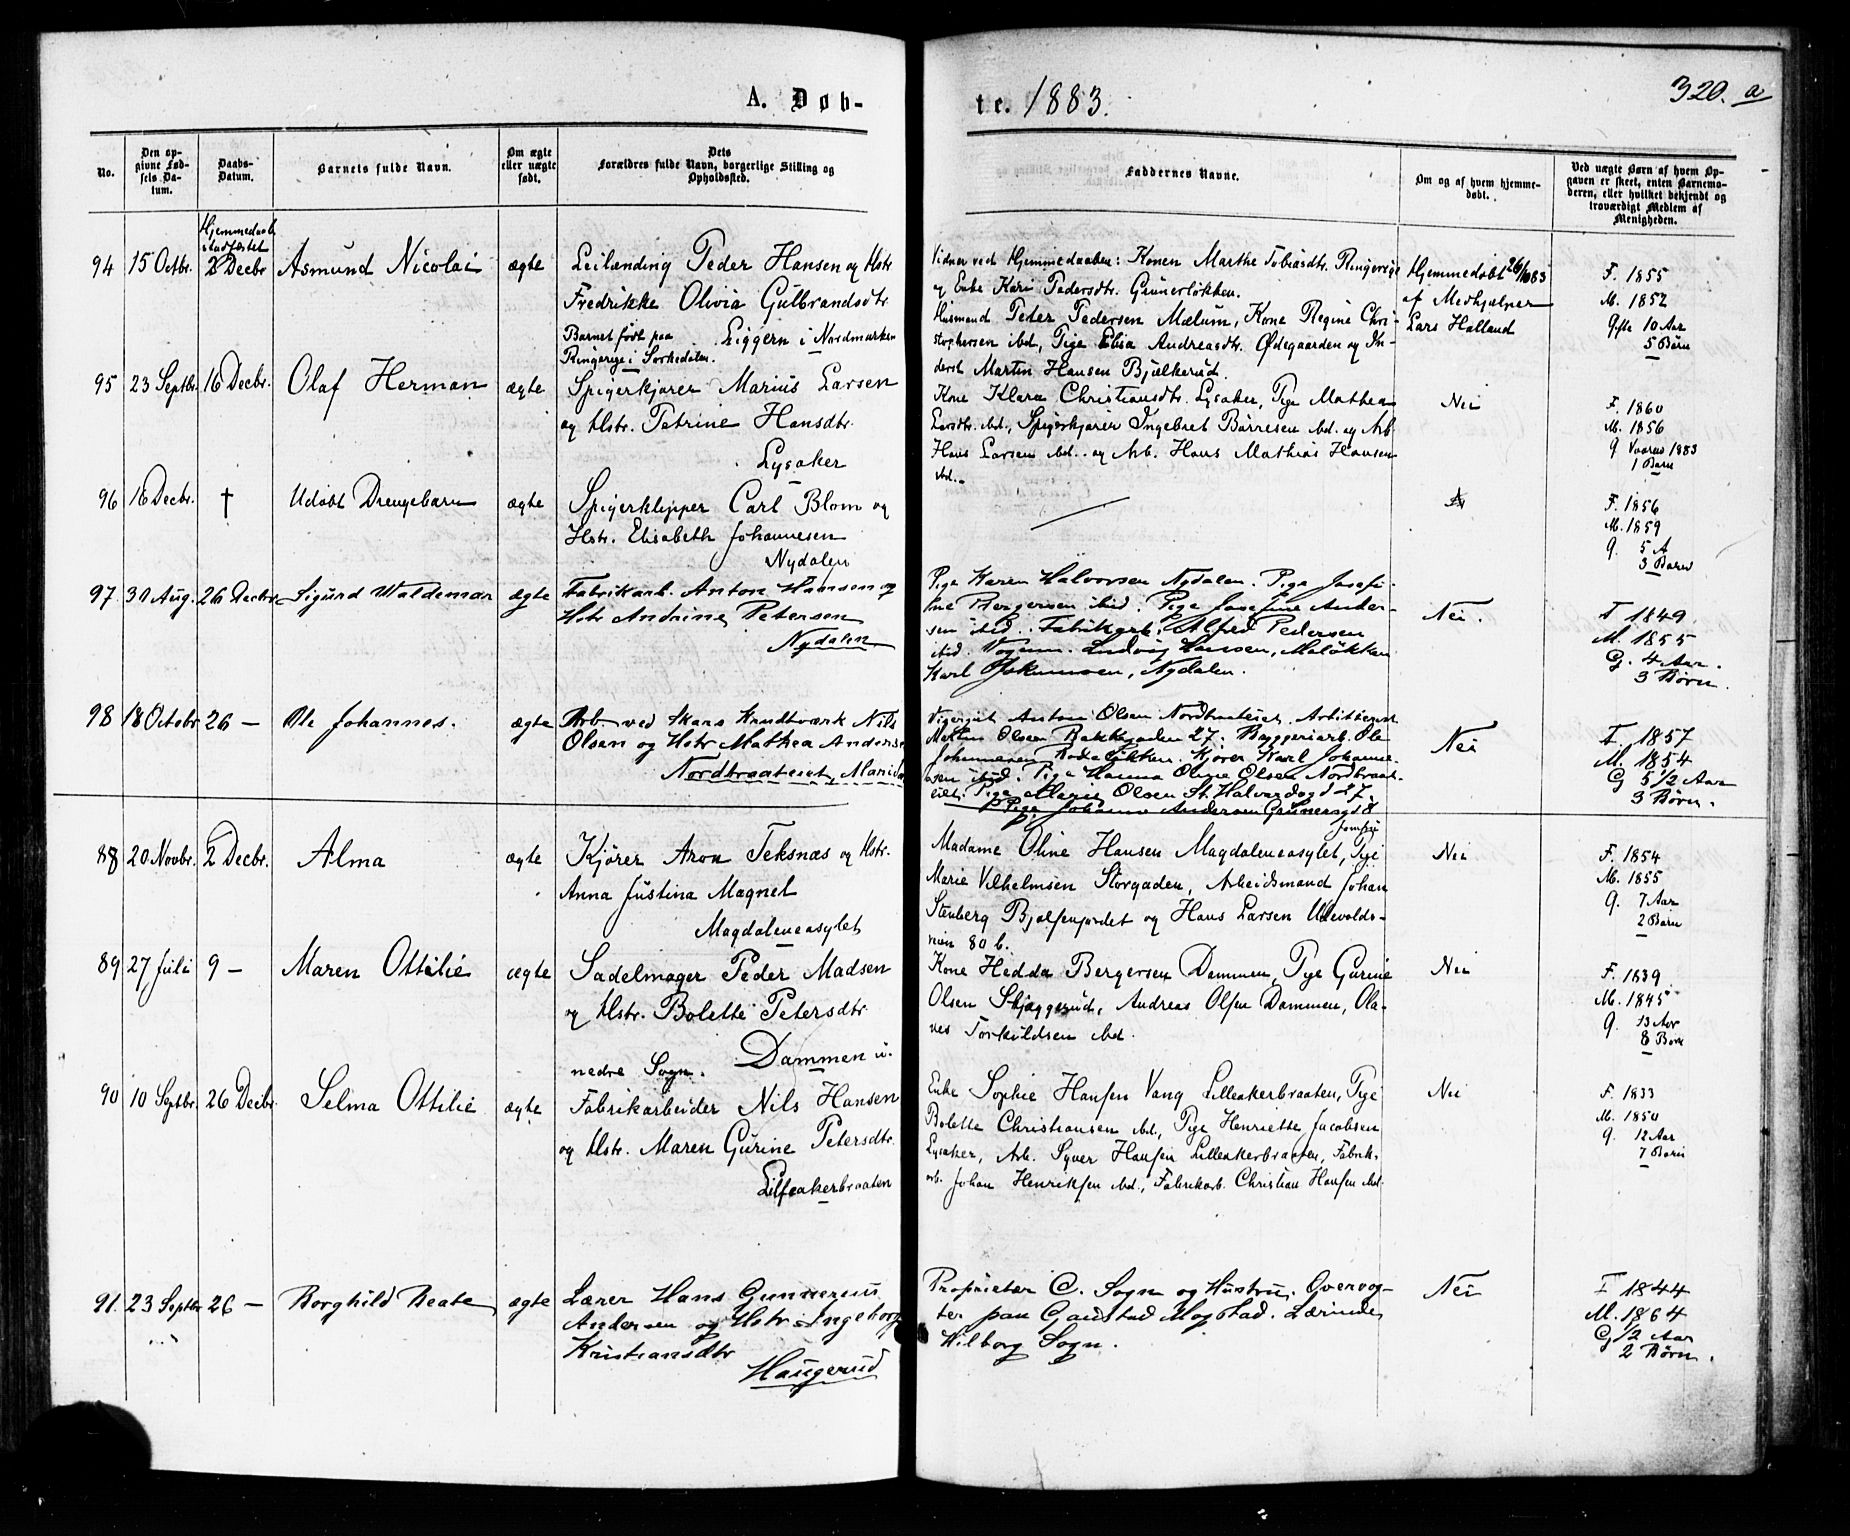 320. a
A. Døb-
te. 1883.
No.
Den op-
givne Fød-
sels Da-
tum.
Daabs-
Datum.
Barnets fulde Navn.
Om ægte
eller uægte
født.
Dets
Forældres fulde Navn, borgerlige Stilling og
Opholdssted.
Faddernes Navne.
Om og af hvem hjemme-
døbt.
Ved uægte Børn af hvem Op-
gaven er skeet, enten Barnemo-
deren, eller hvilket bekjendt og
troværdigt Medlem af
Menigheden.
94 15 Octbr. Hjemmedaab
stadfæstet
2 Decbr Asmund Nicolai ægte
Leilænding Peder Hansen og Hstr
Fredrikke Olivia Gulbrandsdtr
Barnet født paa Liggern i Nordmarken
Ringerige i Sørkedalen.
Vidner ved Hjemmedaaben: Konen Marthe Tobiasdtr. Ringerige
og Enke Kari Pedersdtr. Grünerløkken.
Husmand Peder Pedersen Mælum, Kone Regine Chri-
stophersen ibd, Pige Elisa Andreasdtr. Ødegaarden og In-
derst Martin Hansen Bjælkerud.
Hjemmedøbt 26/10 83
af Medhjælper
Lars Holland
F. 1855
M. 1852
Gifte 10 Aar
5 Børn
95 23 Septbr. 16 Decbr. Olaf Herman ægte
Spigerkjører Marius Larsen
og Hstr. Petrine Hansdtr.
Lysaker
Kone Klara Christiansdtr. Lysaker, Pige Mathea
Larsdtr. ibd., Spigerkjører Ingebret Børresen ibd. og Arb
Hans Larsen ibd. og Arb. Hans Mathias Hansen
ibd.
Nei
F. 1860
M. 1856
G Vaaren 1883
1 Barn
96 16 Decbr. † Udøbt Drengebarn ægte
Spigerklipper Carl Blom og
Hstr. Elisabeth Johannesen
Nydalen
F. 1856
M. 1859
G. 5 A
3 Børn
97. 31 Aug. 26 Decbr. Sigurd Waldemar ægte
Fabrikarb. Anton Hansen og
Hstr Andrine Petersen
Nydalen
Pige Karen Halvorsen Nydalen. Pige Josefi-
ne Bergersen ibid. Pige Josefine Ander-
sen ibid. Fabrikarb. Alfred Pedersen
ibid. Vognm. Ludvig Hansen, Maløkken
Karl Johannesen, Nydalen.
Nei.
F 1849.
M. 1855
G. 4 Aar.
3 Børn.
98 18 Octobr 26 — Ole Johannes. ægte
Arb. ved Akers Sandtværk Nils
Olsen og Hstr Mathea Anderse
Nordbraateiet, Marida
Anton Olsen Nordbraateiet. Arbeider
Martin Olsen Bakkegaden 27. Byggeriarb. Ole
Johannesen Rodeløkken. Kjører Karl Johanne-
sen ibid. Pige Hanna Oline Olsen Nordbraat-
eiet. Pige Maren Olsen St. Halvardsgd 27.
Pige Johanne Andersen Grünersgd 8
Nei
F. 1857
M. 1854
G 5 1/2 Aar
3 Børn.
88 20 Novbr. 2 Decbr. Alma ægte
Kjører Aron Teksnæs og Hstr.
Anna Justina Magnet
Magdaleneasylet
Jomfru
Madame Oline Hansen Magdaleneasylet, Pige
Marie Vilhelmsen Storgaden, Arbeidsmand Johan
Stenberg Bjølsenfordet og Hans Larsen Ullevolds-
veien 80 b.
Nei
F. 1854
M. 1855
G. 7 Aar
2 Børn
89 27 Juli 9 — Maren Ottilie ægte
Sadelmager Peder Madsen
og Hstr. Bolette Petersdtr.
Dammen i
nedre Sogn.
Kone Hedda Bergersen Dammen, Pige Gurine
Olsen Skjæggerud, Andreas Olsen Dammen, Ola-
ves Torkildsen ibd.
Nei
F. 1839
M. 1845
G. 13 Aar
8 Børn
90 10 Septbr. 26 Decbr. Selma Ottilie ægte
Fabrikarbeider Nils Hansen
og Hstr. Maren Gurine Petersdtr.
Lilleakerbraaten
Enke Sophie Hansen Vang Lilleakerbraaten, Pige
Bolette Christiansen ibd., Pige Henriette Jacobsen
Lysaker, Arb. Syver Hansen Lilleakerbraaten, Fabrik-
arb. Johan Henriksen ibd., Fabrikarb. Christian Hansen ibd.
Nei
F. 1833
M. 1850
G. 12 Aar
7 Børn
91. 23 Septbr 26 — Borghild Beate ægte
Lærer Hans Gunnerius
Andersen og Hstr Ingeborg
Kristiansdtr
Haugerud
Proprietær C. Sogn og Hustru. Overvog-
ter paa Gaustad Mogstad. Lærinde
Hilborg Sogn.
Nei
F 1844
M. 1864
G 1/2 Aar
2 Børn.